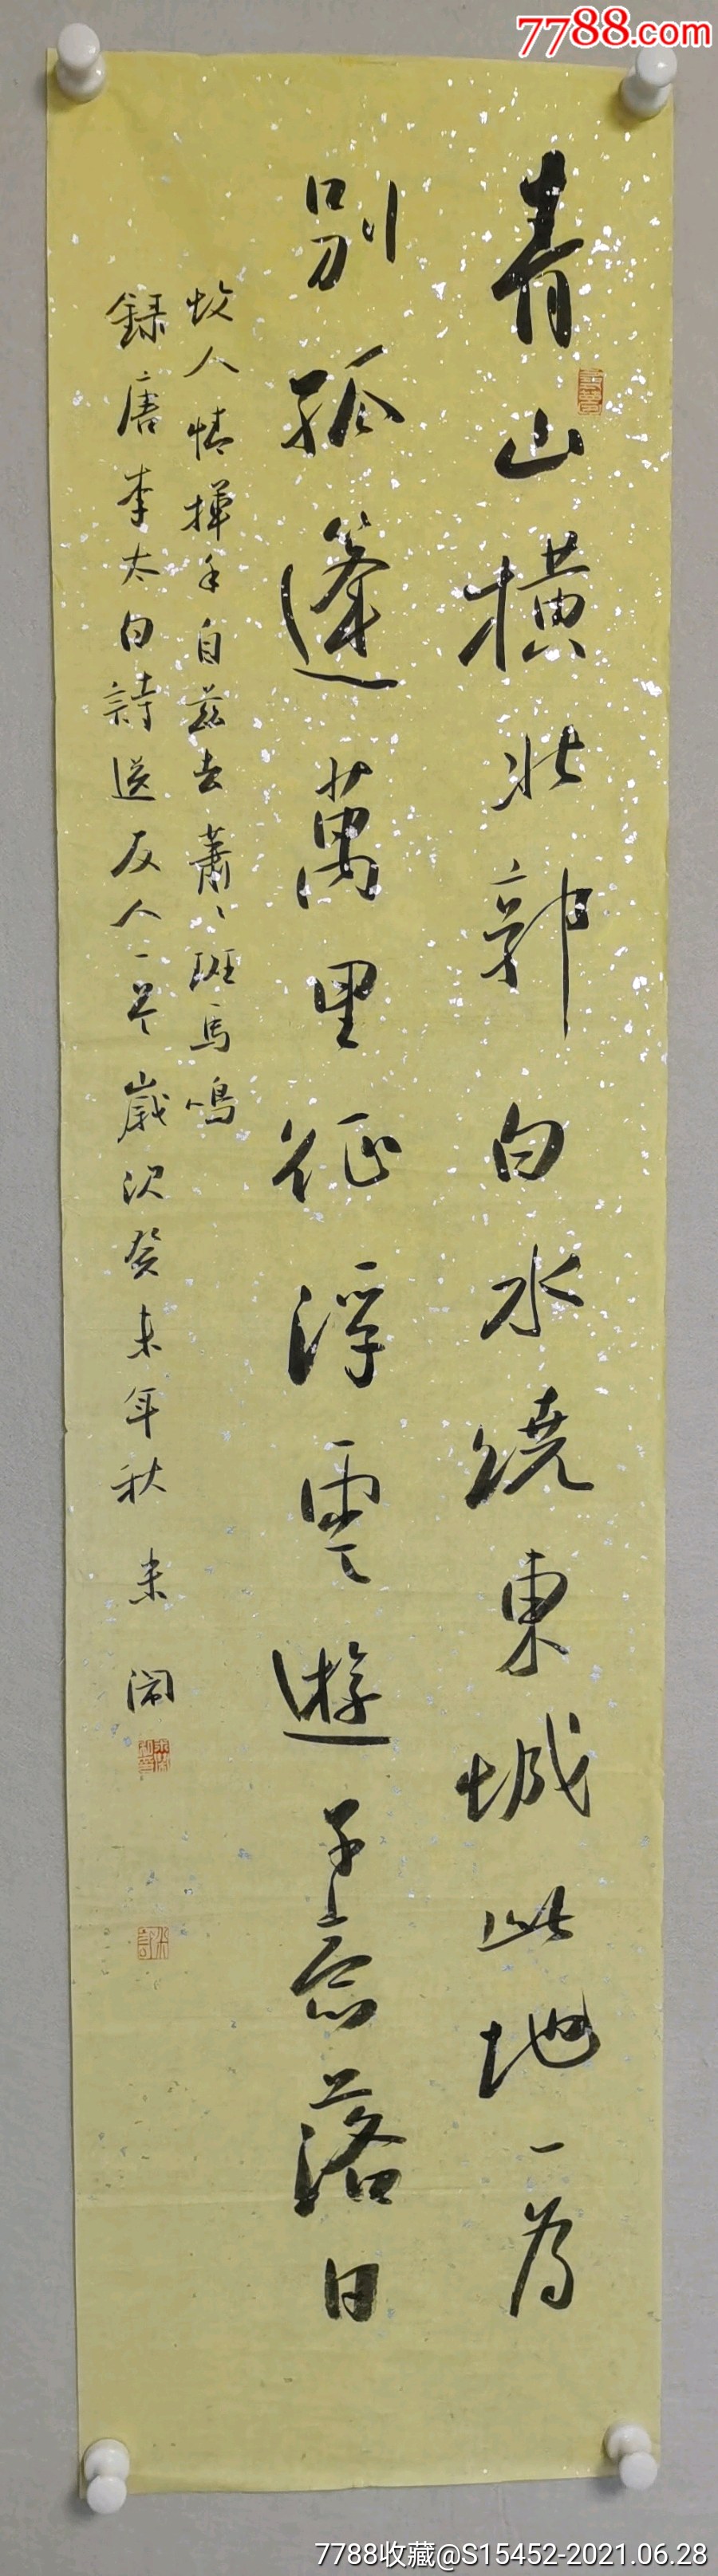 7788.com
青山橫北郭白水繞東城此地一為
別孤蓬萬里征浮雲遊子意落日
故人情揮手自茲去蕭〻斑馬鳴
録唐李太白詩送友人一首歲次癸未年秋
7788收藏@S15452-2021.06.28